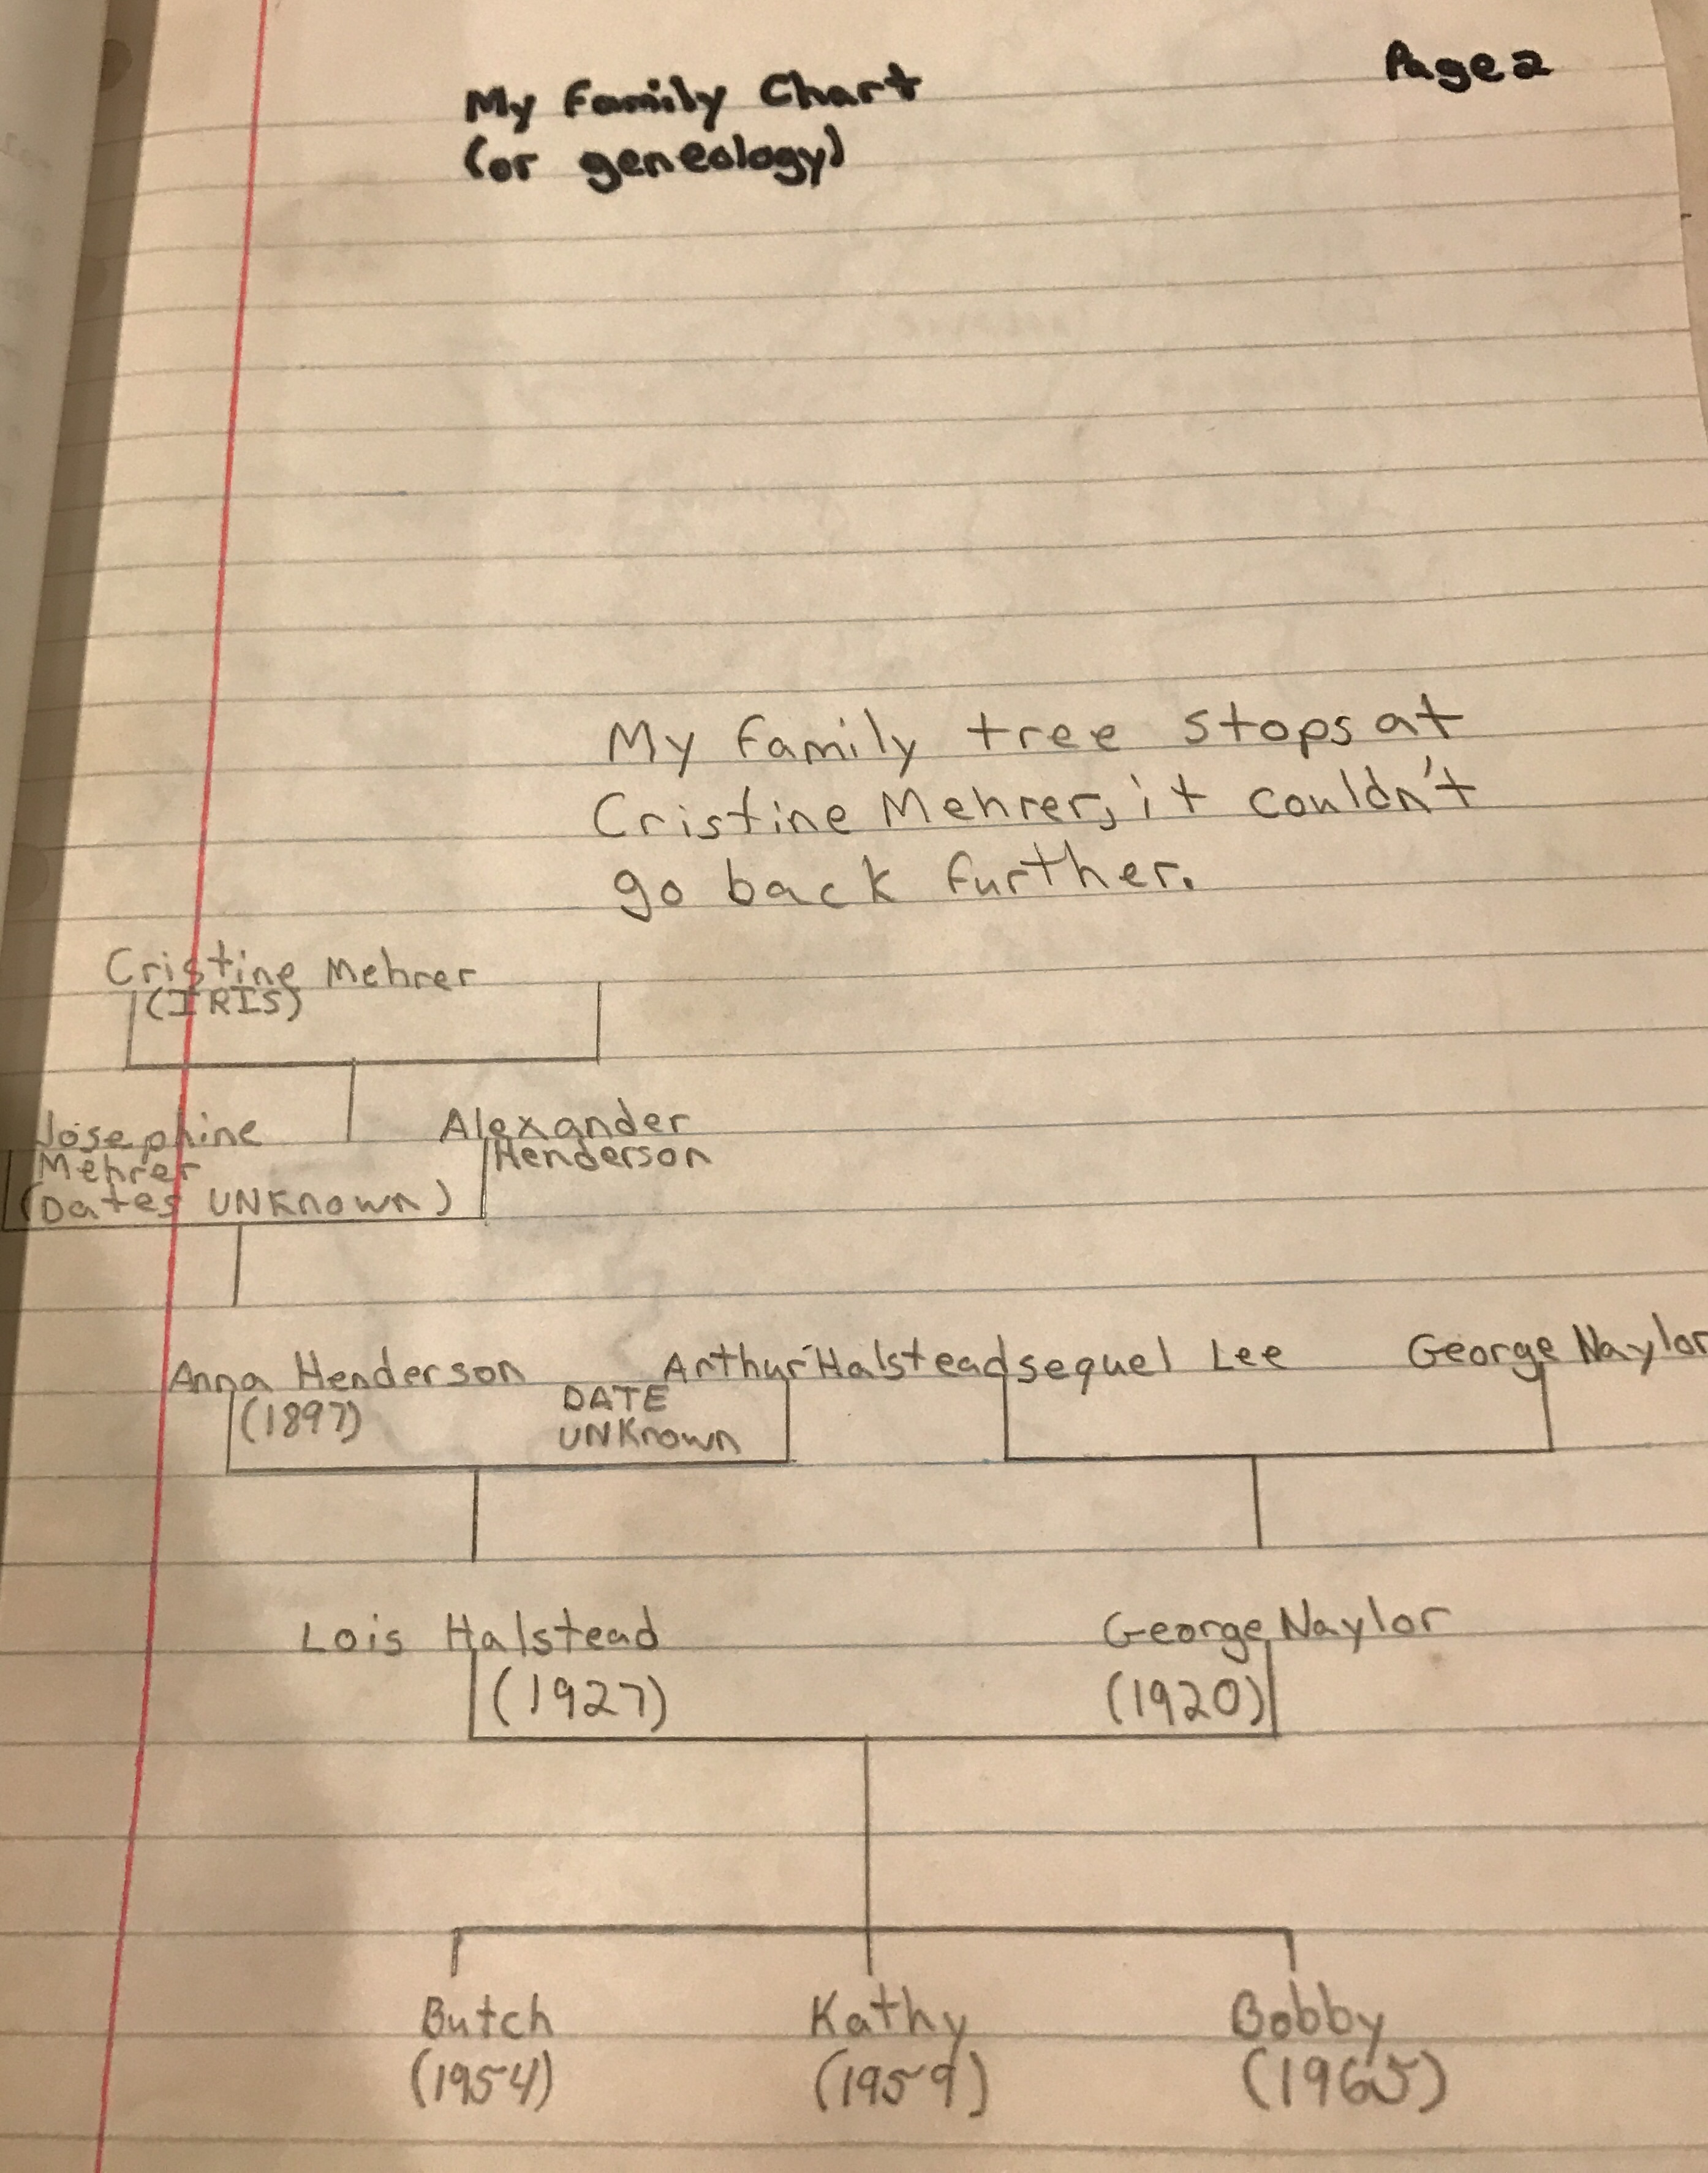 Page 2
My Family Chart
(or geneology)
My family tree stops at
Cristine Mehrer, it couldn't
go back further.
Cristine Mehrer
(IRIS)
Josephine
Mehrer
(Dates UNKnown)
Alexander
Henderson
Anna Henderson
(1897)
Arthur Halstead
DATE
UNKnown
sequel Lee
George Naylor
Lois Halstead
(1927)
George Naylor
(1920)
Butch
(1954)
Kathy
(1959)
Bobby
(1965)